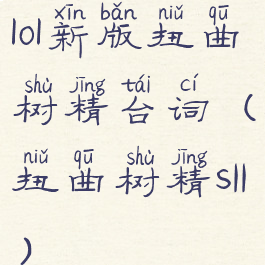 xīn bǎn niǔ qū
lol新版扭曲
shù jīng tái cí
树精台词(
niǔ qū shù jīng
扭曲树精sll
)